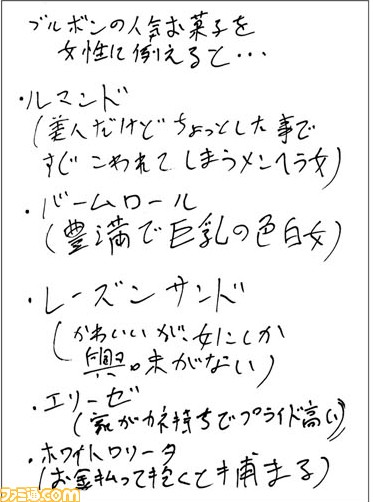 ブルボンの人気お菓子を
女性に例えると・・・
・ルマンド
(美人だけどちょっとした事で
すぐこわれてしまうメンヘラ女)
・バームロール
(豊満で巨乳の色白女)
・レーズンサンド
(かわいいが、女にしか
興味がない)
・エリーゼ
(家がカネ持ちでプライド高い)
・ホワイトロリータ
(お金払って抱くと捕まる)
ファミ通.com